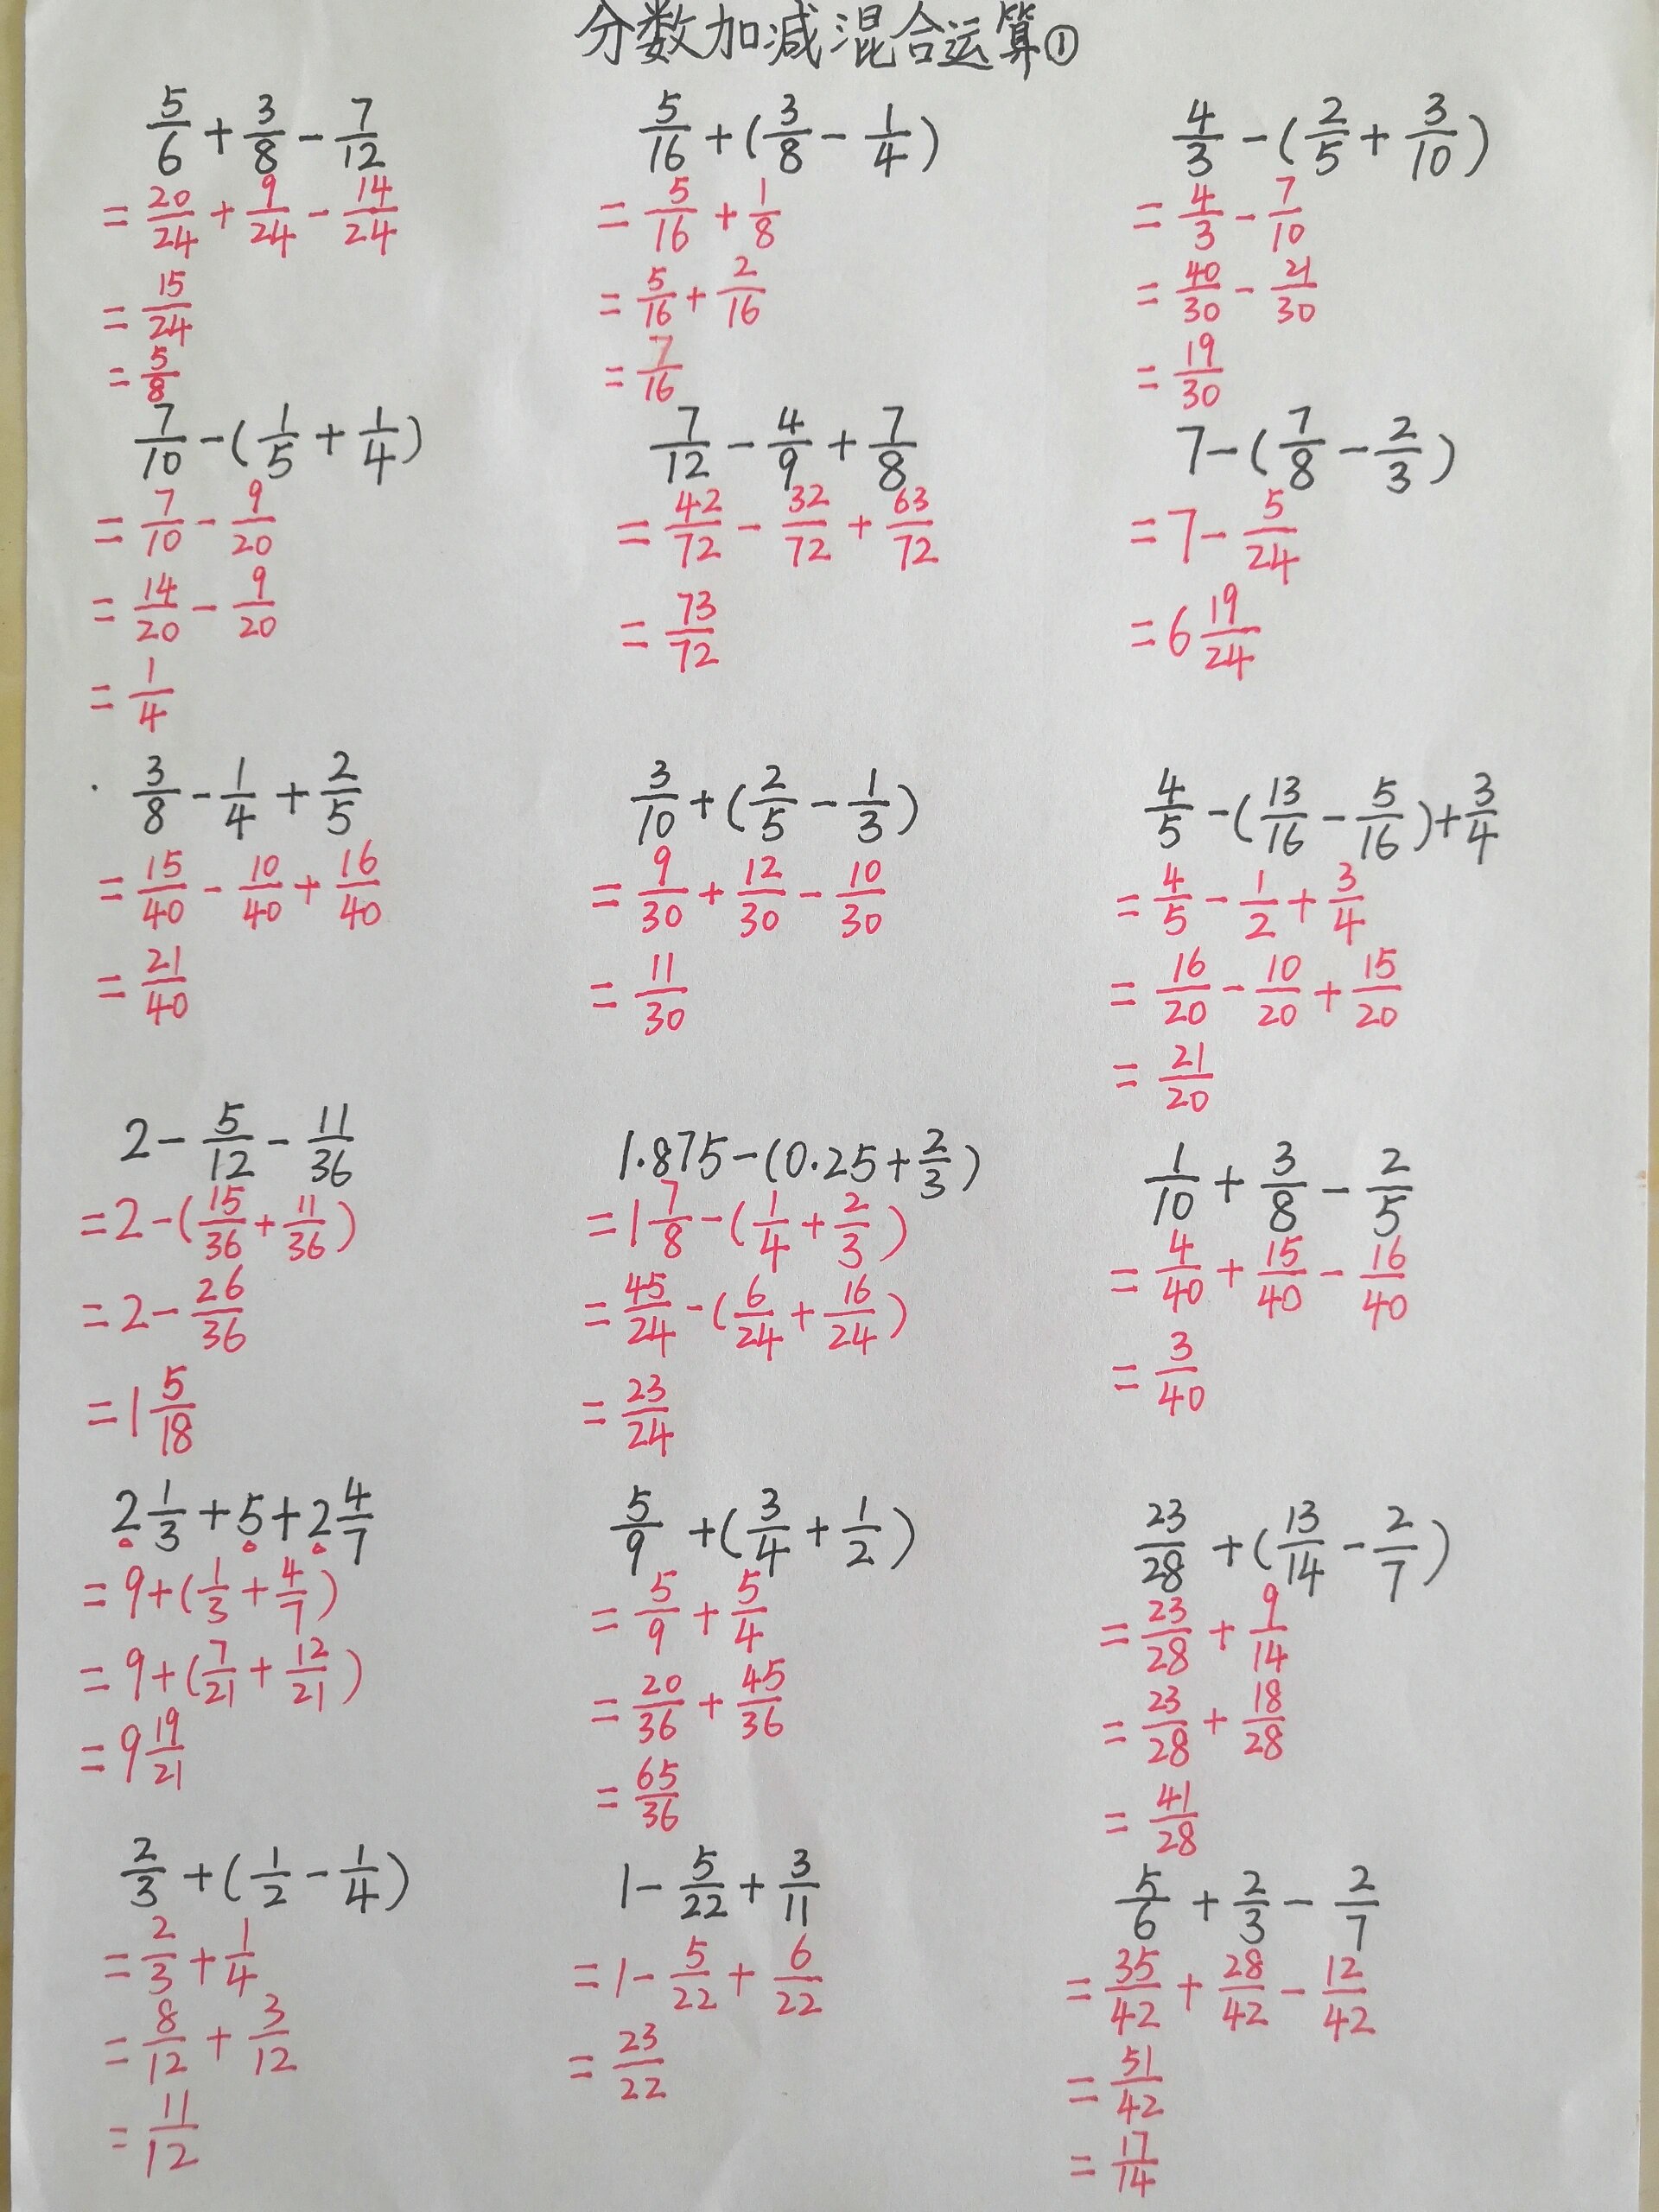 分数加减混合运算①
5/6 + 3/8 - 7/12
= 20/24 + 9/24 - 14/24
= 15/24
= 5/8
5/16 + (3/8 - 1/4)
= 5/16 + 1/8
= 5/16 + 2/16
= 7/16
4/3 - (2/5 + 3/10)
= 4/3 - 7/10
= 40/30 - 21/30
= 19/30
7/10 - (1/5 + 1/4)
= 7/10 - 9/20
= 14/20 - 9/20
= 1/4
7/12 - 4/9 + 7/8
= 42/72 - 32/72 + 63/72
= 73/72
7 - (7/8 - 2/3)
= 7 - 5/24
= 6 19/24
3/8 - 1/4 + 2/5
= 15/40 - 10/40 + 16/40
= 21/40
3/10 + (2/5 - 1/3)
= 9/30 + 12/30 - 10/30
= 11/30
4/5 - (13/16 - 5/16) + 3/4
= 4/5 - 1/2 + 3/4
= 16/20 - 10/20 + 15/20
= 21/20
2 - 5/12 - 11/36
= 2 - (15/36 + 11/36)
= 2 - 26/36
= 1 5/18
1.875 - (0.25 + 2/3)
= 1 7/8 - (1/4 + 2/3)
= 45/24 - (6/24 + 16/24)
= 23/24
1/10 + 3/8 - 2/5
= 4/40 + 15/40 - 16/40
= 3/40
2 1/3 + 5 + 2 4/7
= 9 + (1/3 + 4/7)
= 9 + (7/21 + 12/21)
= 9 19/21
5/9 + (3/4 + 1/2)
= 5/9 + 5/4
= 20/36 + 45/36
= 65/36
23/28 + (13/14 - 2/7)
= 23/28 + 9/14
= 23/28 + 18/28
= 41/28
2/3 + (1/2 - 1/4)
= 2/3 + 1/4
= 8/12 + 3/12
= 11/12
1 - 5/22 + 3/11
= 1 - 5/22 + 6/22
= 23/22
5/6 + 2/3 - 2/7
= 35/42 + 28/42 - 12/42
= 51/42
= 17/14